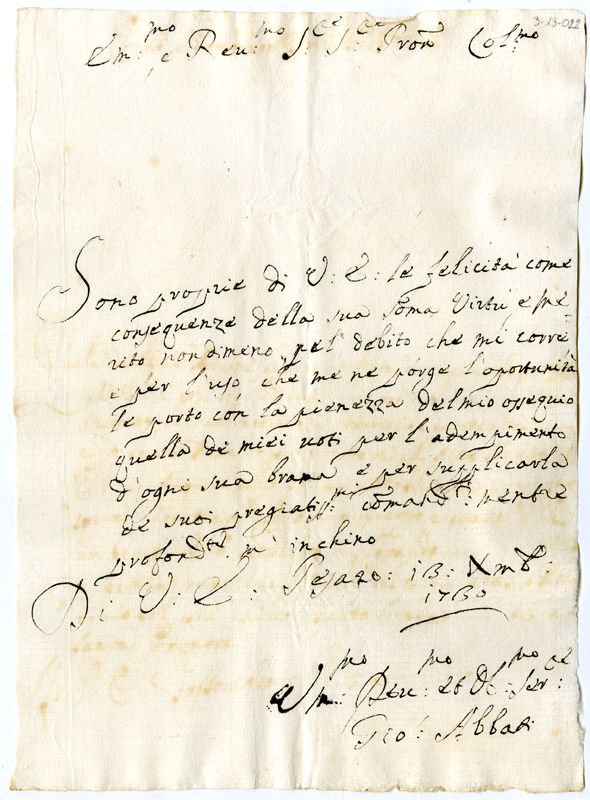 3-13-022
Em:mo e Reu:mo S:re S:re Pron Col:mo
Sono proprie di V: E: le felicità come
conseguenze della sua soma Virtù, e me-
rito non dimeno pel' debito che mi corre
e per l'uso che me ne porge l'oportunità
le porto con la pienezza del mio ossequio
quella de miei uoti per l'adempimento
d'ogni sua brama e per supplicarla
de suoi pregiatiss:mi comand:ti mentre
profond:te m'inchino
Di V: E: Pesaro: 13: Xmb:
1730
Um:mo Deu:mo et Ob:mo ser:re
Gio: Abbati